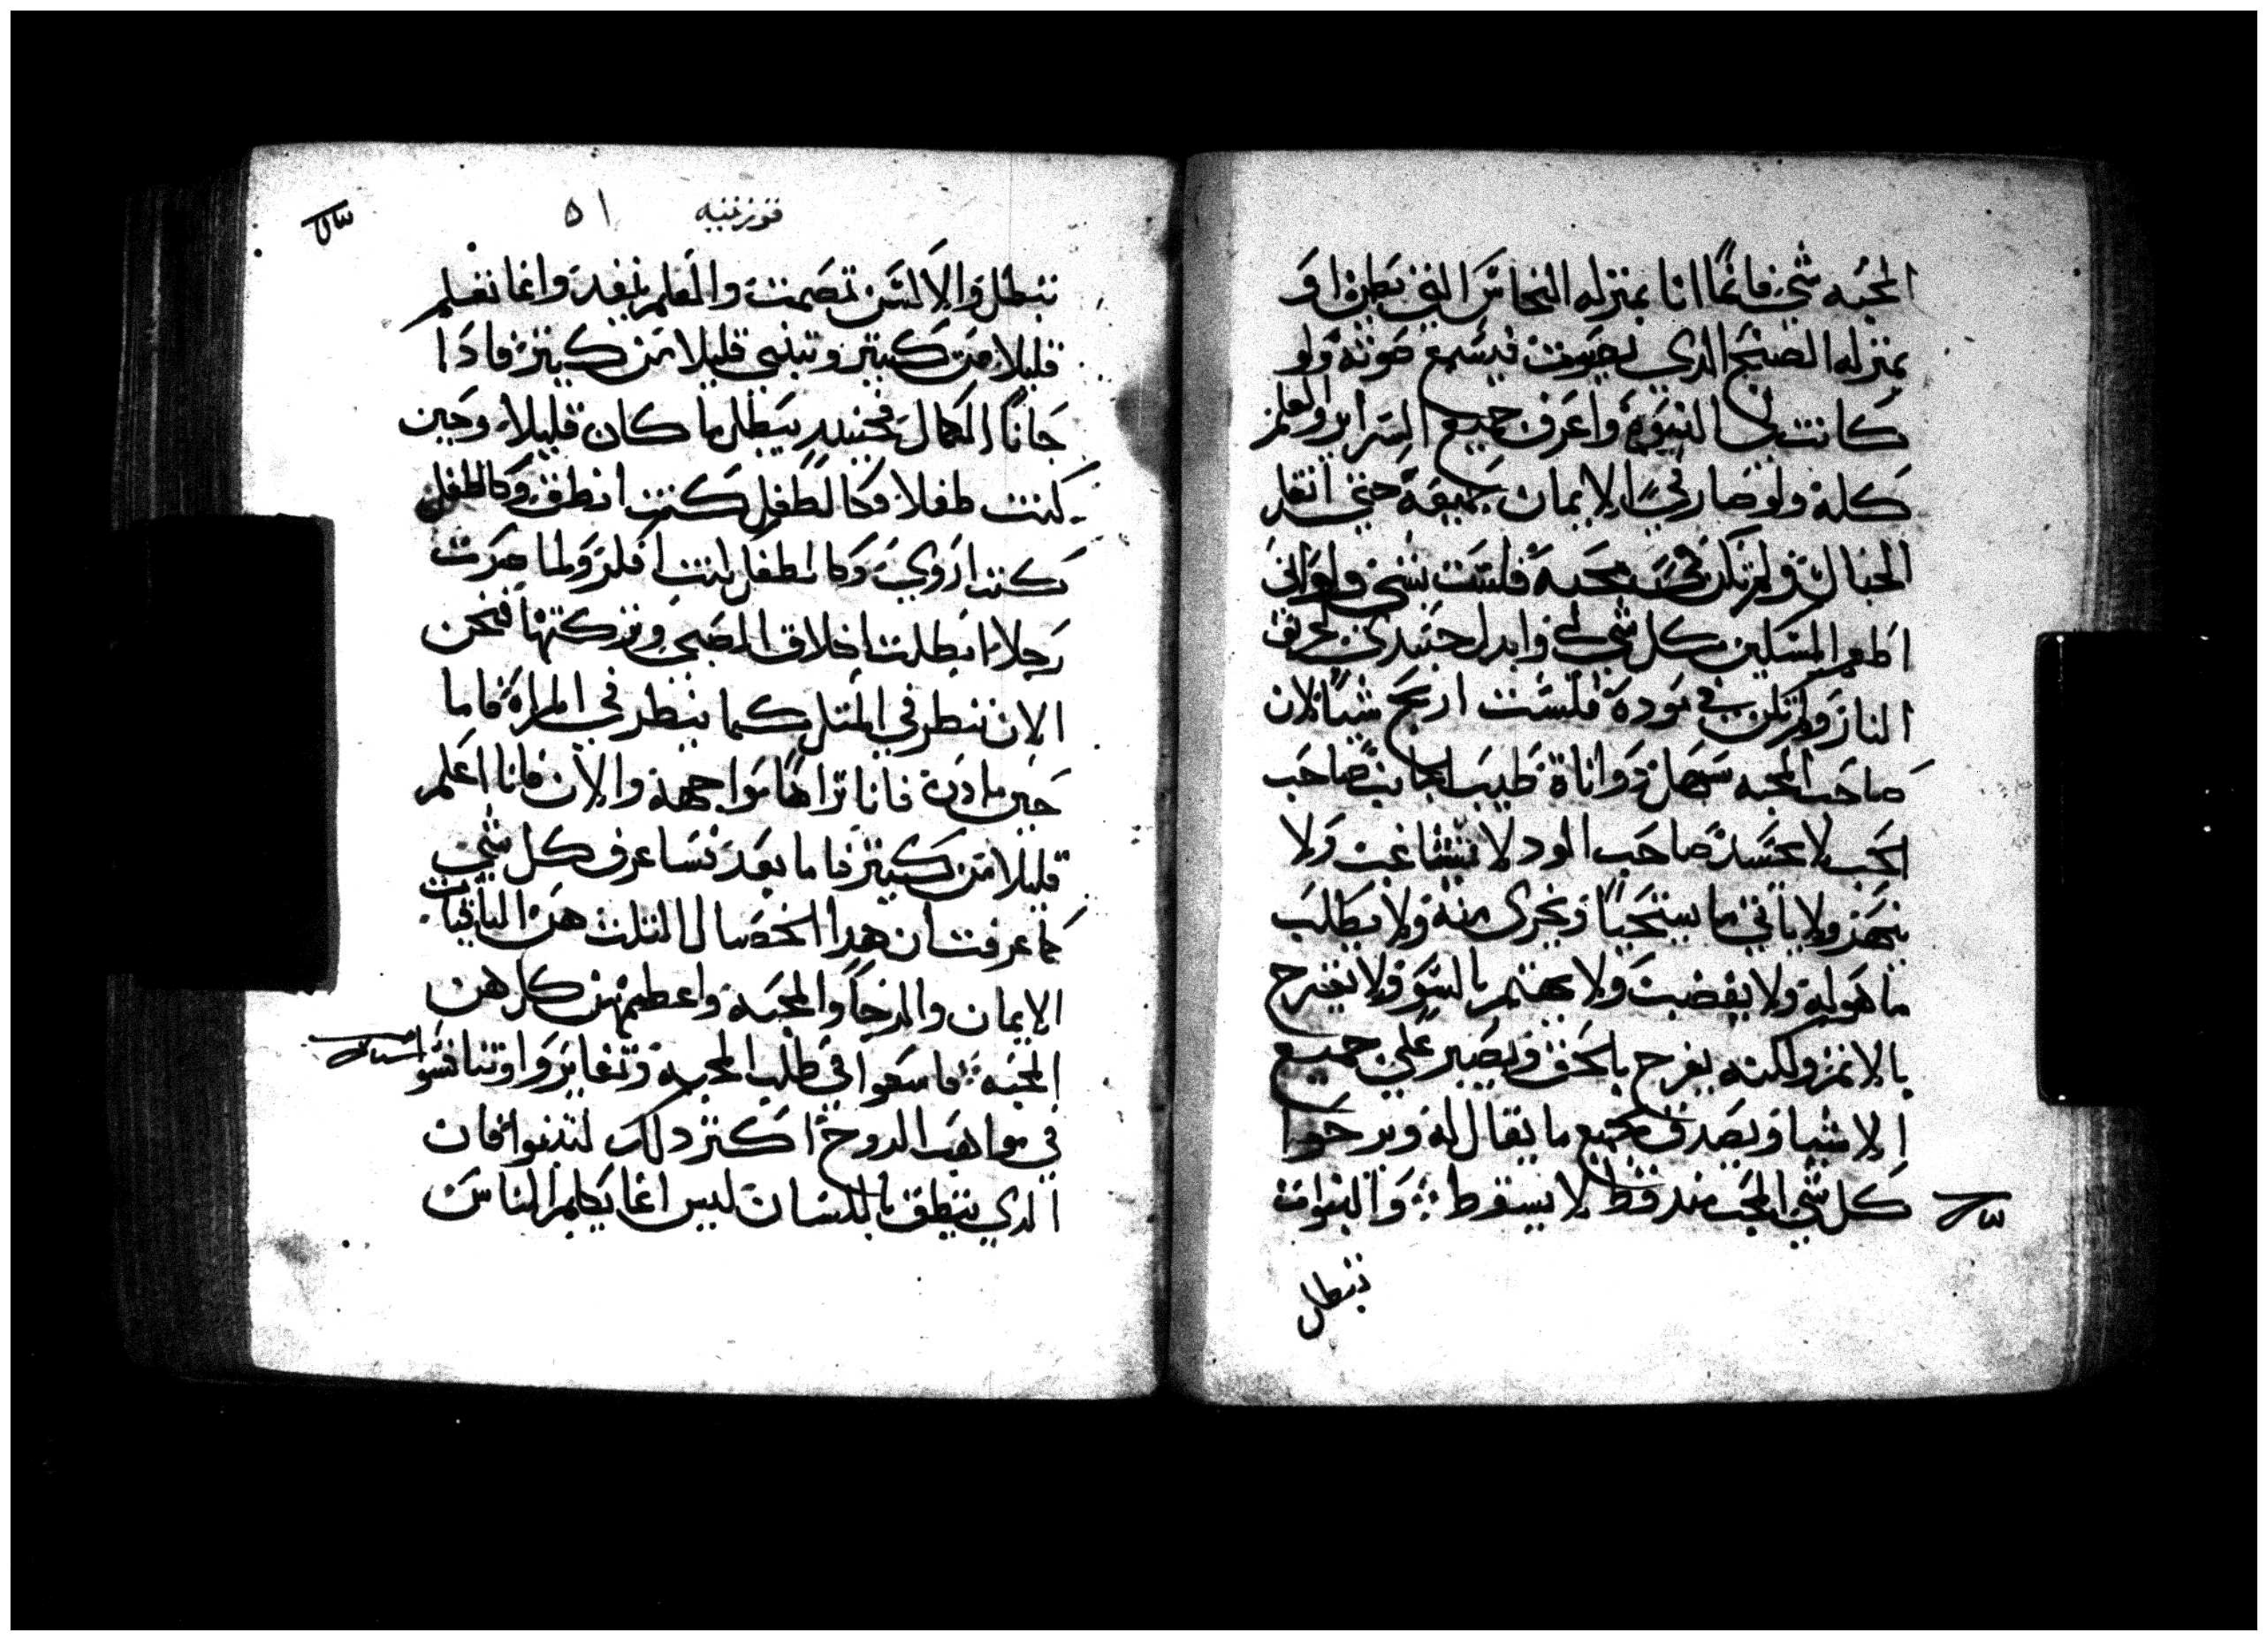 المحبه شي فانما انا بمنزله النحاس الذي يطن او
بمنزله الصنج الذي يصوت فيسمع صوته ولو
كانت لي النبوه واعرف جميع السراير والعلم
كله ولو صار في الايمان جميعه حتي انقل
الجبال ولم تكن في محبه فلست بشي ولو اني
اطعم المسكين كل شي لي وابدل جسدي لحريق
النار ولم تكن في موده فلست اربح شيا لان
صاحب المحبه سهل دو اناة طيب الجانب صاحب
الحب لا يحسد صاحب الود لا يتشاغب ولا
ينهز ولا ياتي ما يستحيا ويخزى منه ولا يطلب
ما هو ليه ولا يغضب ولا يهتم بالسو ولا يفرح
بالاتم ولكنه يفرح بالحق ويصبر علي جميع
الاشيا ويصدق بجميع ما يقال له ويرحوا
كل شي المحب فقط لا يسقط والنبوات
تبطل
قورنتيه ٥١
تبطل والالسن تصمت والعلم ينفد وانما نعلم
قليلا من كتير ونتنبي قليلا من كتير فادا
جانا الكمال فحينيد يبطل ما كان قليلا وحين
كنت طفلا وكالطفل كنت انطق وكالطفل
كنت اروي وكالطفل كنت افكر ولما صرت
رجلا ابطلت اخلاق الصبي وتركتها فنحن
الان ننطر في المتل كما ينطر في المراه فاما
حين ادن فانا نراها مواجهة والان فانا اعلم
قليلا من كتير فاما بعد فساعرف كل شي
كما عرفت ان هدا الخصال التلت هن الباقيات
الايمان والرجا والمحبه واعطمهن كلهن
المحبه فاسعوا في طلب المحبه وتغايروا وتنافسوا
في مواهب الروح اكتر دلك لتنبوا فان
الدي ينطق باللسان ليس انما يكلم الناس